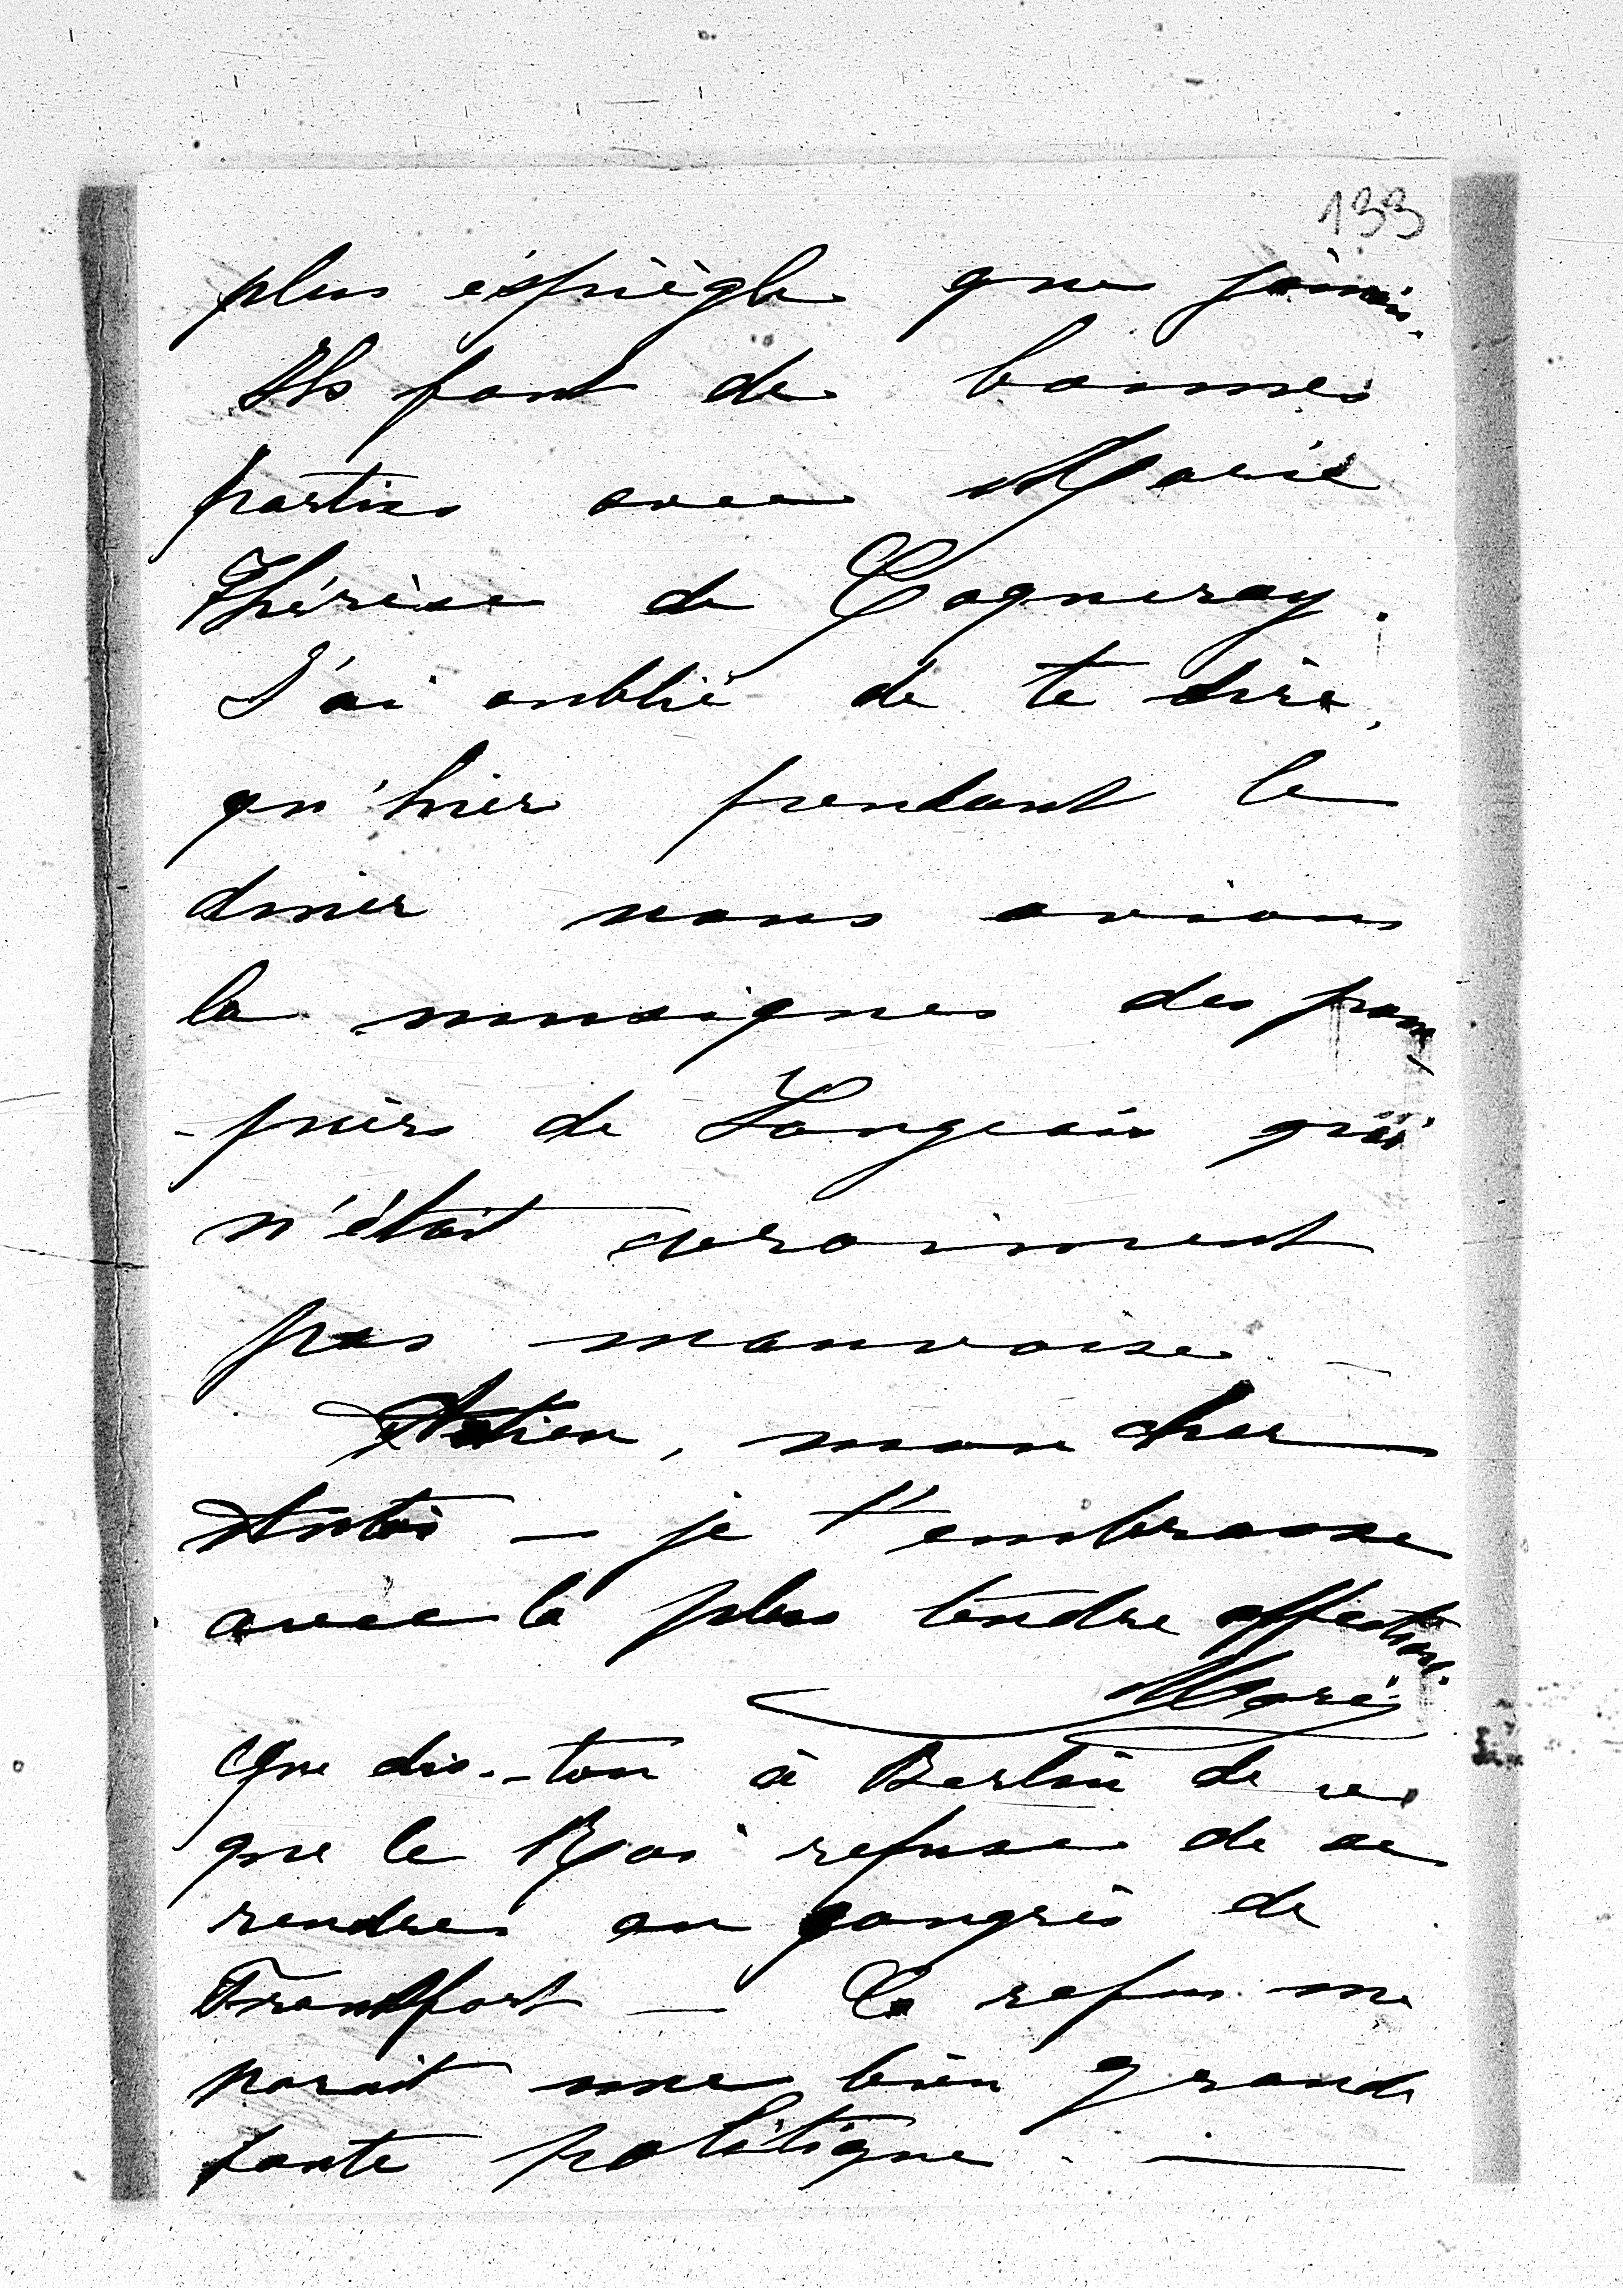 133
plus espiègle que jamais.
Ils font de bonnes
parties avec Marie
Thérèse de Cagneray.
J'ai oublié de te dire,
qu'hier pendant le
diner nous avions
la musique des pom-
-piers de Langeais qui
n'était vraiment
pas mauvaise —
Adieu, mon cher
Antoi — je t'embrasse
avec la plus tendre affection.
Marie
Que dis-ton à Berlin de ce
que le Roi refuse de se
rendre au congrès de
Francfort — Ce refus me
parait une bien grande
faute politique. —